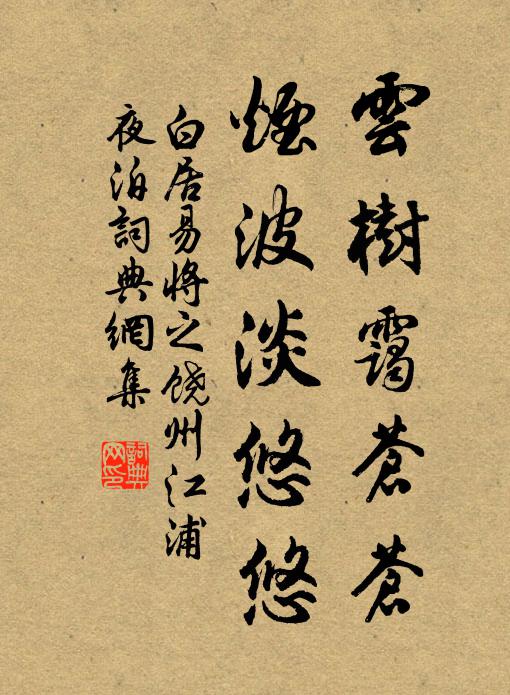 雲樹靄蒼蒼
煙波淡悠悠
白居易將之饶州江浦
夜泊詞典網集
詞典
网印